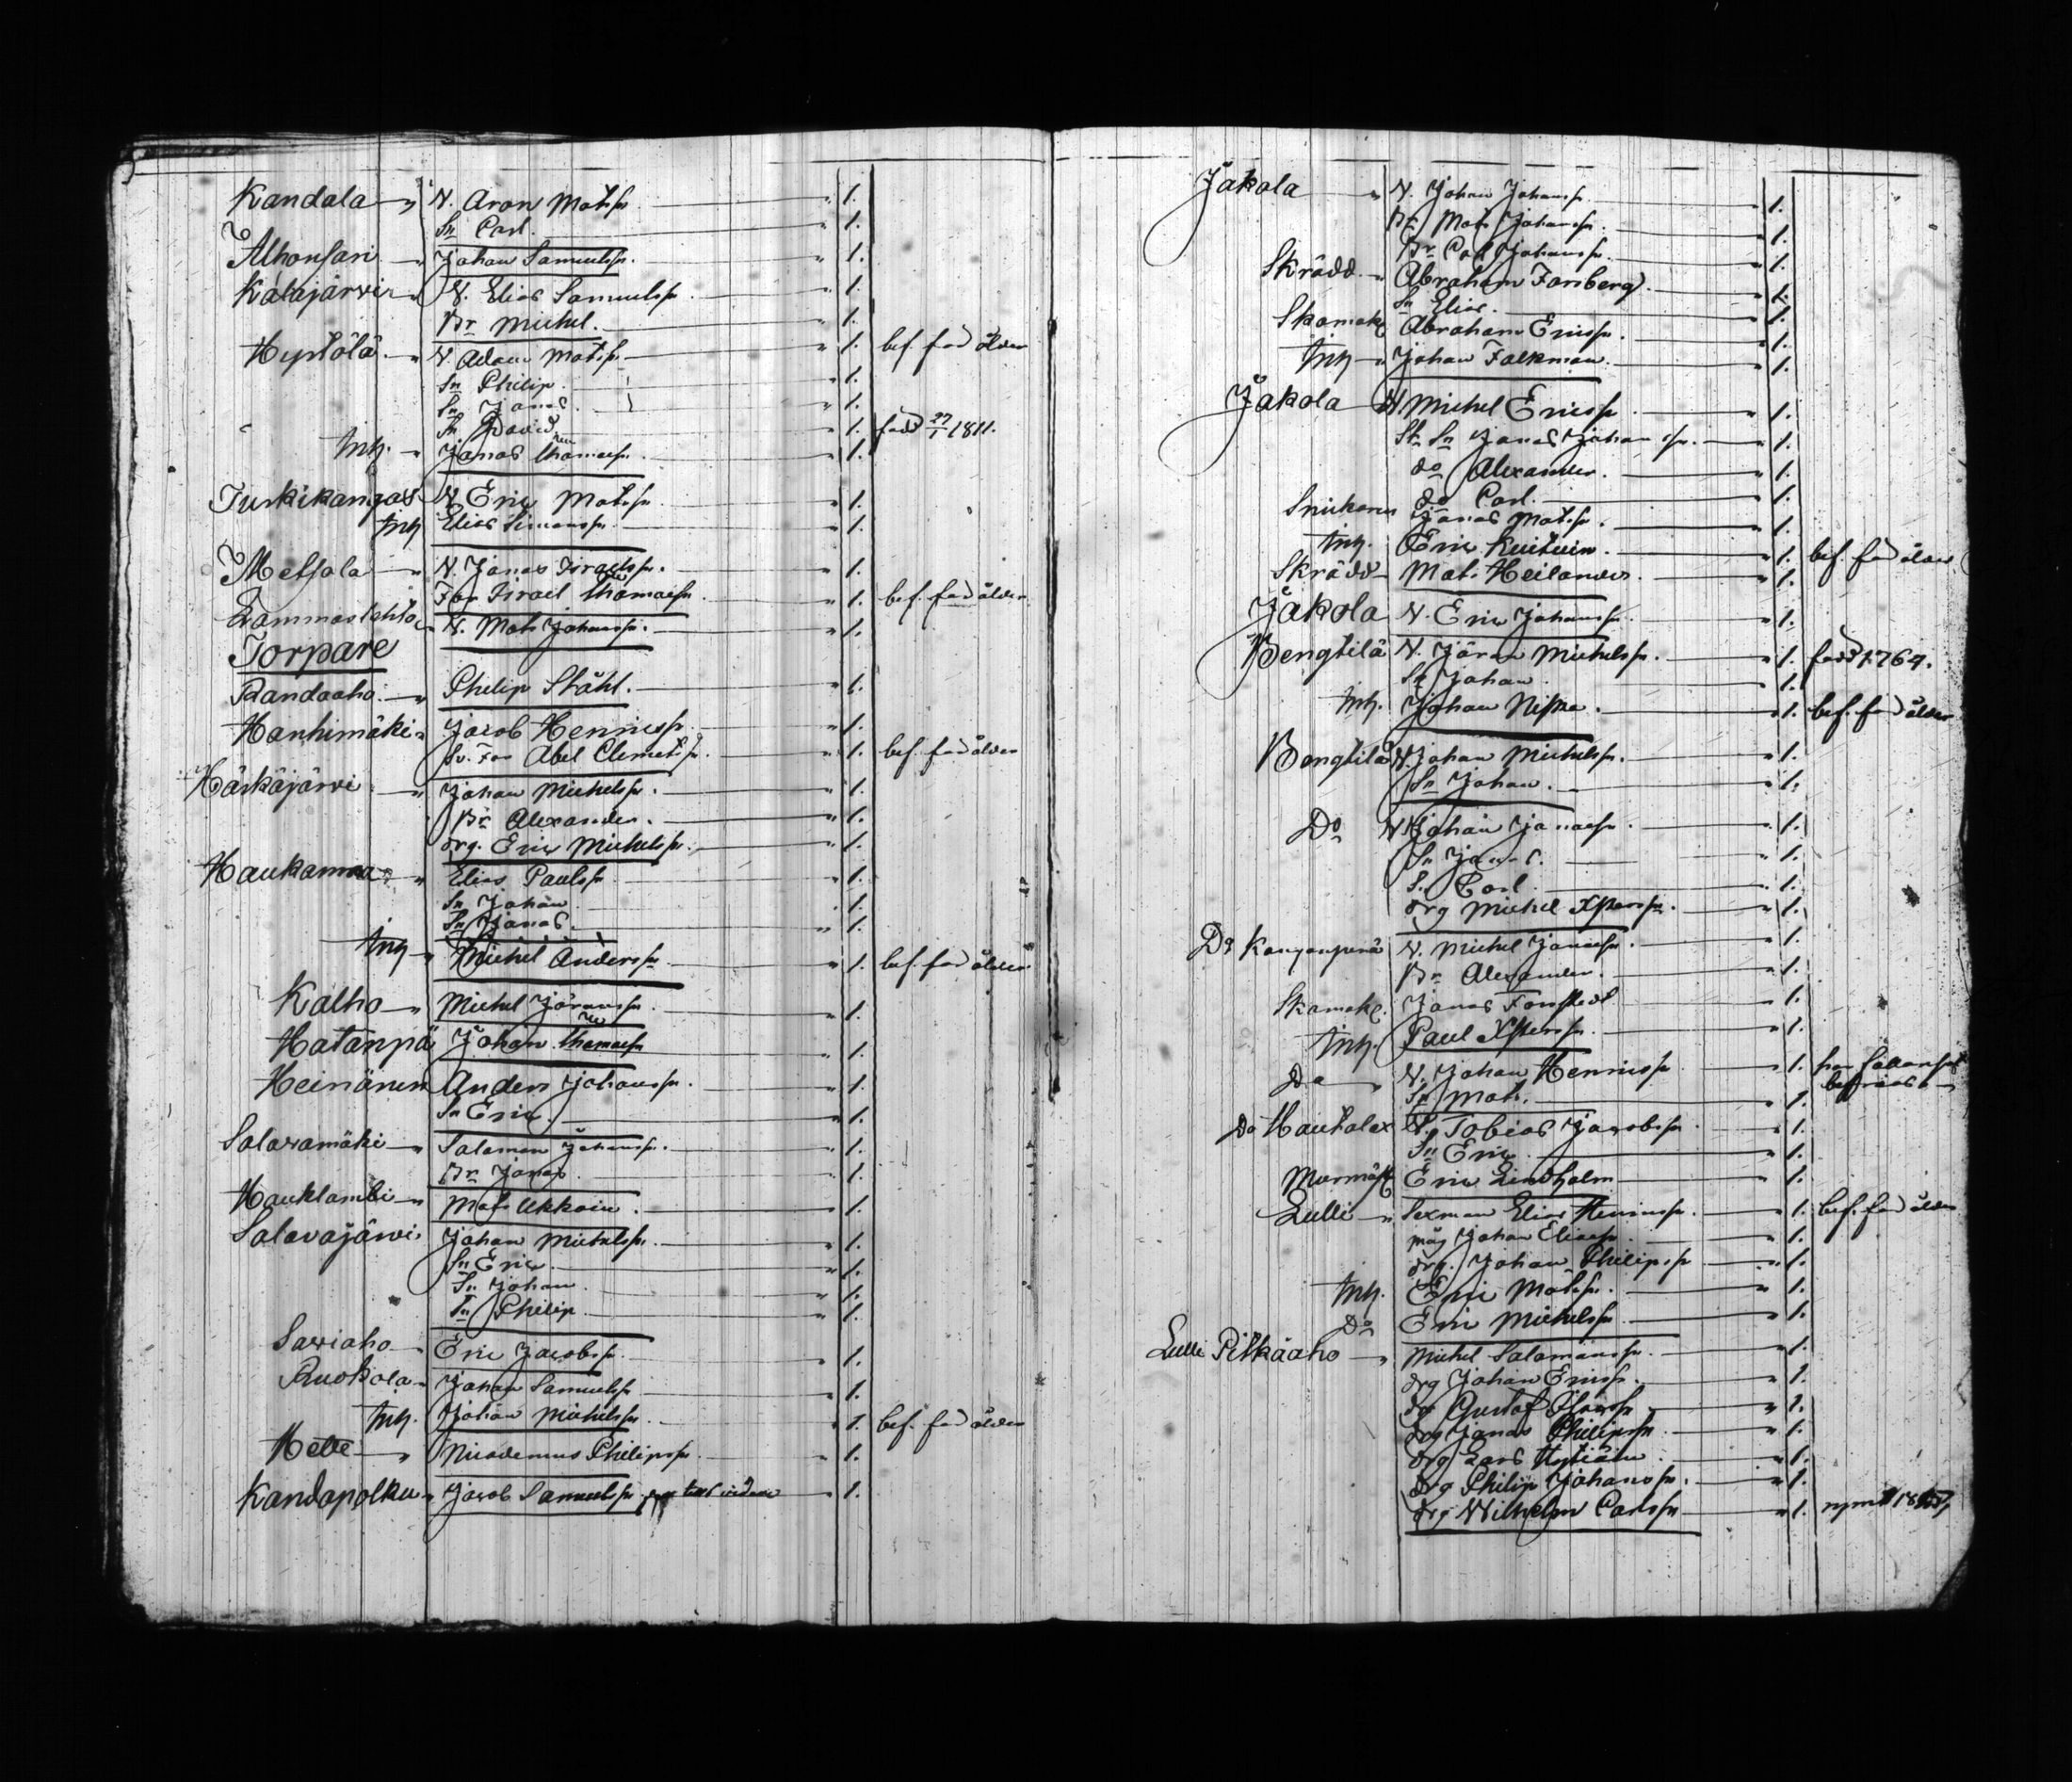 Kandala " N. Aron Matss. " 1.
Sn Carl. " 1.
Alhonsari " Johan Samuelss. " 1.
Kalajärvi " N. Elias Samuelss. " 1.
Br Michel. " 1.
Hyttölä " N. Adam Matss. " 1. bef. för ålder
Sn Philip. " 1.
Sn Jonas. " 1.
Sn David " 1. född 27/1 1811.
Inh. " Jonas Thomaess. " 1.
Turkikangas N Eric Matss. " 1.
Inh Elias Simonss. " 1.
Metsola " N. Jonas Israelss. " 1.
Far Israel Thomaess. " 1. bef. för ålder
Lammaslehto " N. Mats Johanss. " 1.
Torpare
Randaaho " Philip Ståhl. " 1.
Hanhimäki " Jacob Henricss. " 1.
Sv. Far Abel Clemetss. " 1. bef. för ålder
Härkäjärvi " Johan Michelss. " 1.
Br Alexander. " 1.
drg. Eric Michelss. " 1.
Haukanmaa " Elias Paulss. " 1.
Sn Johan " 1.
Sn Jonas. " 1.
Inh " Michel Anderss. " 1. bef. för ålder
Kalho " Michel Jöranss. " 1.
Hatanpä Johan Thomaess " 1.
Heinänen Anders Johanss. " 1.
Sn Eric. " 1.
Salaxamäki " Salamon Johanss. " 1.
Br Jonas. " 1.
Hauklambi " Mats Ukkoin. " 1.
Salavajärvi " Johan Michelss. " 1.
Sn Eric. " 1.
Sn Johan " 1.
Sn Philip " 1.
Saviaho " Eric Jacobss. " 1.
Ruokola " Johan Samuelss. " 1.
Inh. Johan Michelss. " 1. bef. för ålder
Hette " Nicodemus Philipss. " 1.
Kandapolku " Jacob Samuelss. " 1.
Jakola " N. Johan Johanss. " 1.
Br Mats Johanss. " 1.
Br Carl Johanss. " 1.
Skrädd. " Abraham Forsberg. " 1.
Sn Elias. " 1.
Skomak. Abraham Ericss. " 1.
Inh " Johan Falkman. " 1.
Jakola N Michel Ericss. " 1.
St. Sn Jonas Johanss. " 1.
do Alexander. " 1.
do Carl. " 1.
Snickaren Jonas Matss. " 1.
Inh. Eric Kuituin. " 1. bef. för ålder
Skrädd " Mats Heilander. " 1.
Jakola N. Eric Johanss. " 1.
Bengtilä N. Jöran Michelss. " 1. född 1764.
Sn Johan. " 1.
Inh. Johan Niska. " 1. bef. för ålder
Bengtilä N. Johan Michelss. " 1.
Sn Johan. " 1.
Do N Johan Jonaess. " 1.
Sn Jonas. " 1.
Sn Carl. " 1.
drg Michel Xpherss. " 1.
Do Kangonperä N. Michel Jonaess. " 1.
Br Alexander. " 1.
Skomak. Jonas Forsstedt " 1.
Inh. Paul Xpherss. " 1.
Do " N. Johan Henricss. " 1.
Sn Mats. " 1.
Do Hautala N. Tobias Jacobss. " 1.
Sn Eric. " 1.
Murmäst Eric Lindholm " 1.
Lulli " Sexman Elias Henricss. " 1. bef. för ålder
måg Johan Eliaess. " 1.
drg. Johan Philipss. " 1.
Inh. Eric Matss. " 1.
Do Eric Michelss. " 1.
Lulli Pitkäaho " Michel Salamonss. " 1.
drg Johan Ericss. " 1.
do Gustaf Olofss. " 1.
drg Jonas Philipss. " 1.
drg Lars Hytiäin. " 1.
drg Philip Johanss. " 1.
drg Wilhelm Carlss. " 1.